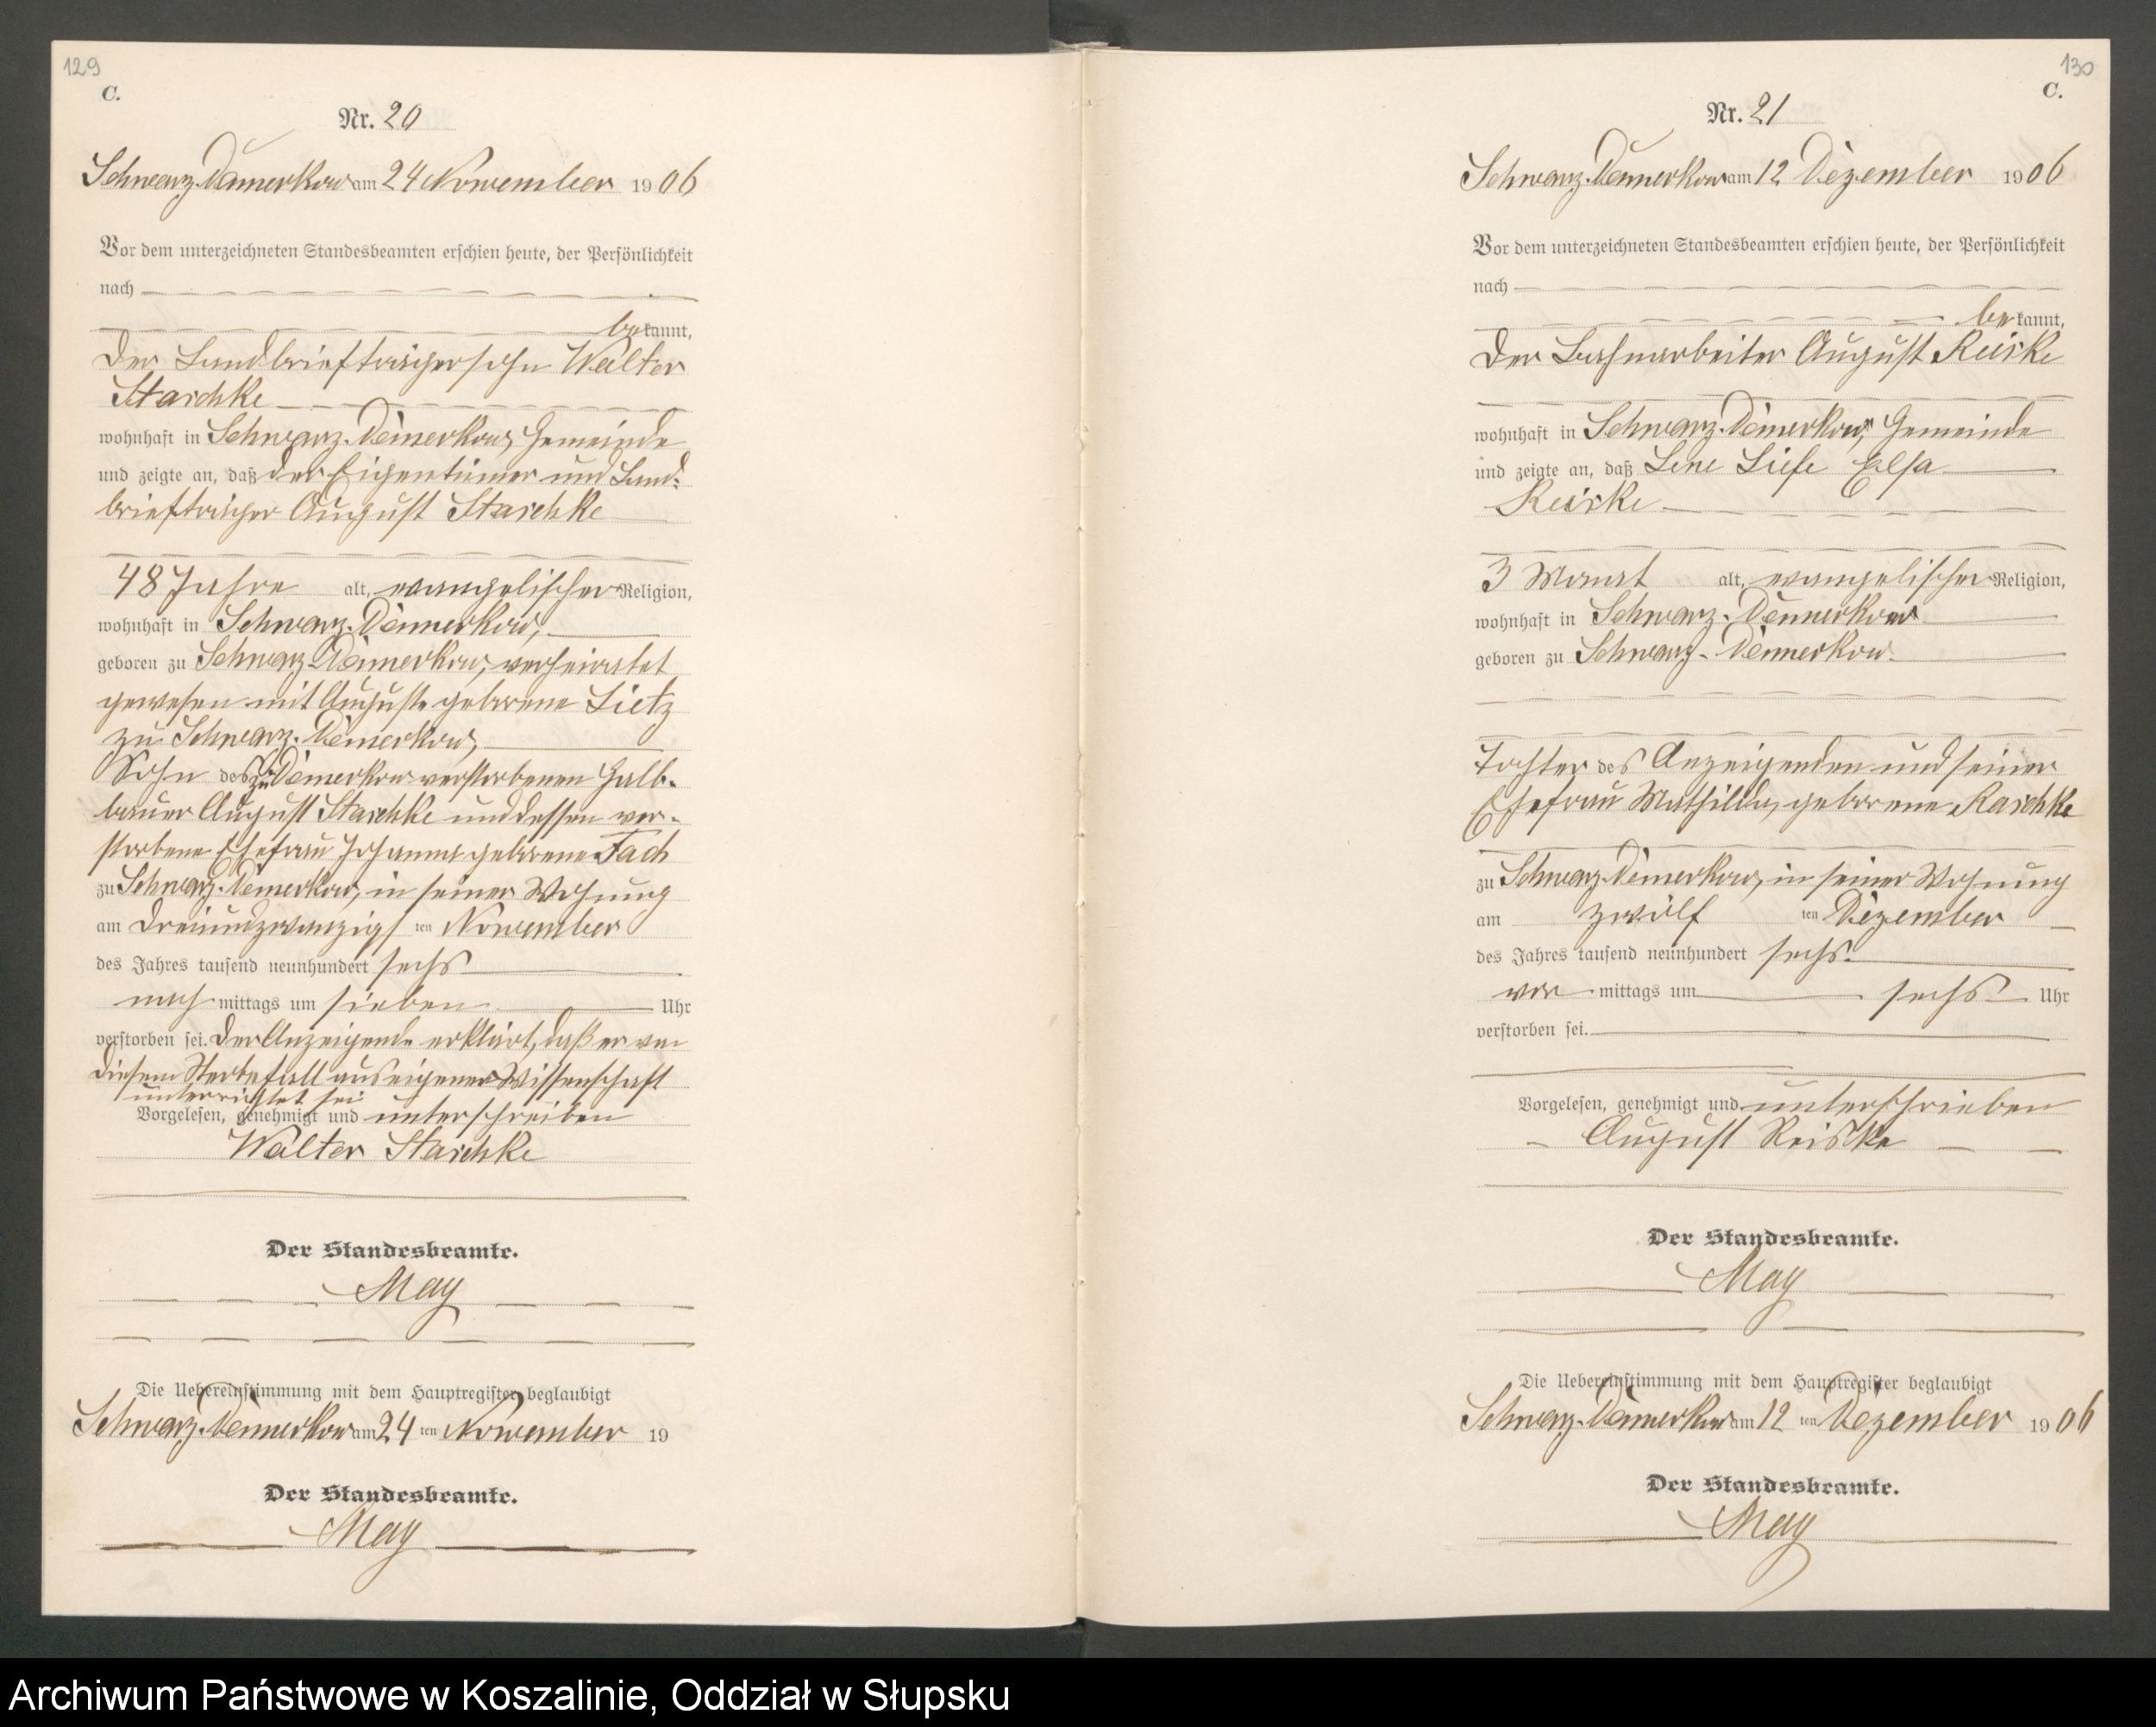 129
C.
Nr. 20
Schwarz-Damerkow am 24 November 1906
Vor dem unterzeichneten Standesbeamten erschien heute, der Persönlichkeit
nach
bekannt,
der Landbriefträgersohn Walter
Staschke
wohnhaft in Schwarz-Damerkow, Gemeinde
und zeigte an, daß der Eigentümer und Land-
briefträger August Staschke
48 Jahre alt, evangelischer Religion,
wohnhaft in Schwarz-Damerkow,
geboren zu Schwarz-Damerkow, verheiratet
gewesen mit Auguste geborene Lietz
zu Schwarz-Damerkow,
Sohn des zu Damerkow verstorbenen Halb-
bauer August Staschke und dessen ver-
storbene Ehefrau Johanna geborene Fach
zu Schwarz-Damerkow, in seiner Wohnung
am dreiundzwanzigsten November
des Jahres tausend neunhundert sechs
nachmittags um sieben Uhr
verstorben sei. Der Anzeigende erklärt, daß er von
diesem Sterbefall aus eigener Wissenschaft
unterrichtet sei
Vorgelesen, genehmigt und unterschreiben
Walter Staschke
Der Standesbeamte.
May
Die Uebereinstimmung mit dem Hauptregister beglaubigt
Schwarz-Damerkow am 24 ten November 19
Der Standesbeamte.
May
130
C.
Nr. 21
Schwarz-Damerkow am 12 Dezember 1906
Vor dem unterzeichneten Standesbeamten erschien heute, der Persönlichkeit
nach
bekannt,
der Bahnarbeiter August Reiske
wohnhaft in Schwarz-Damerkow, Gemeinde
und zeigte an, daß Lene Liese Elsa
Reiske
3 Monat alt, evangelischer Religion,
wohnhaft in Schwarz-Damerkow
geboren zu Schwarz-Damerkow
Tochter des Anzeigenden und seiner
Ehefrau Mathilde, geborene Raschke
zu Schwarz-Damerkow, in seiner Wohnung
am zwölf ten Dezember
des Jahres tausend neunhundert sechs
vormittags um sechs Uhr
verstorben sei.
Vorgelesen, genehmigt und unterschrieben
August Reiske
Der Standesbeamte.
May
Die Uebereinstimmung mit dem Hauptregister beglaubigt
Schwarz-Damerkow am 12 ten Dezember 1906
Der Standesbeamte.
May
Archiwum Państwowe w Koszalinie, Oddział w Słupsku